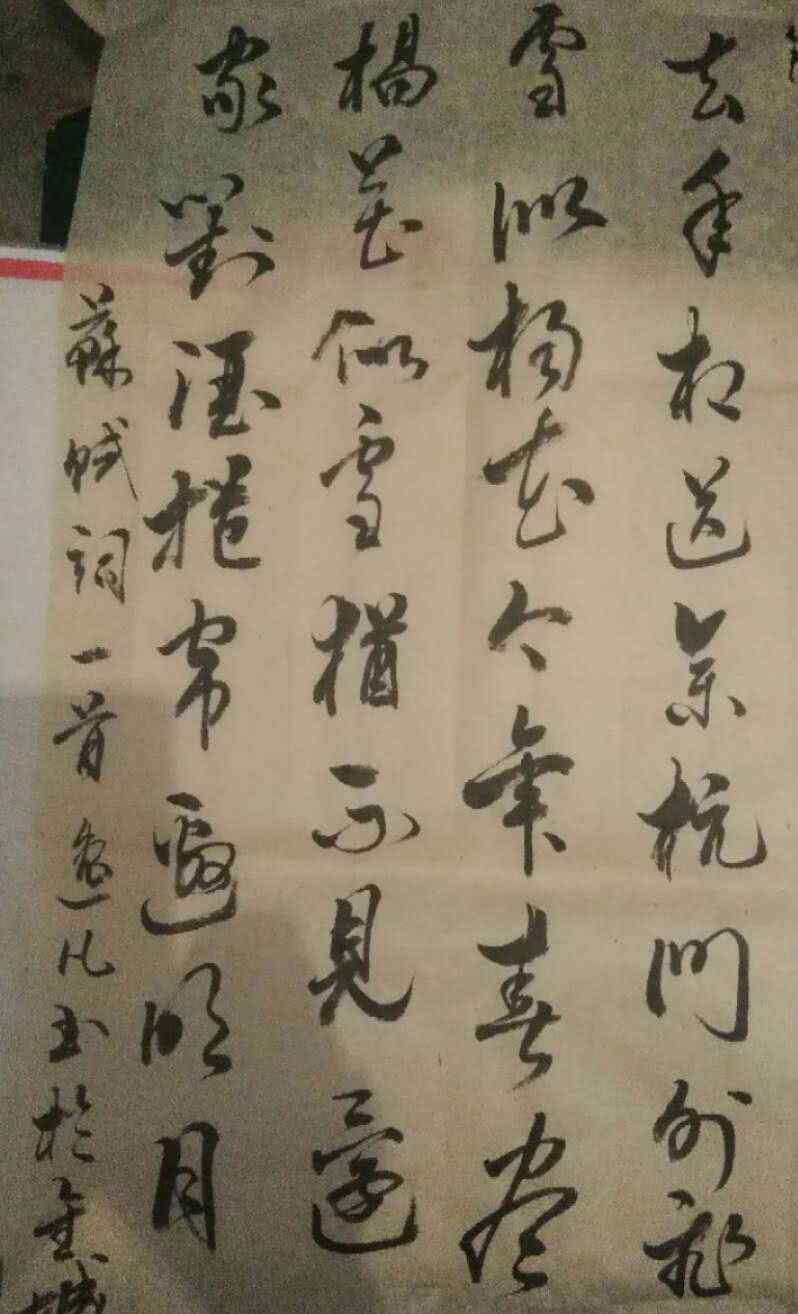 去年相送余杭門外飛
雪似楊花今年春盡
楊花似雪猶不見還
家對酒捲帘邀明月
蘇軾詞一首逸凡书於金城